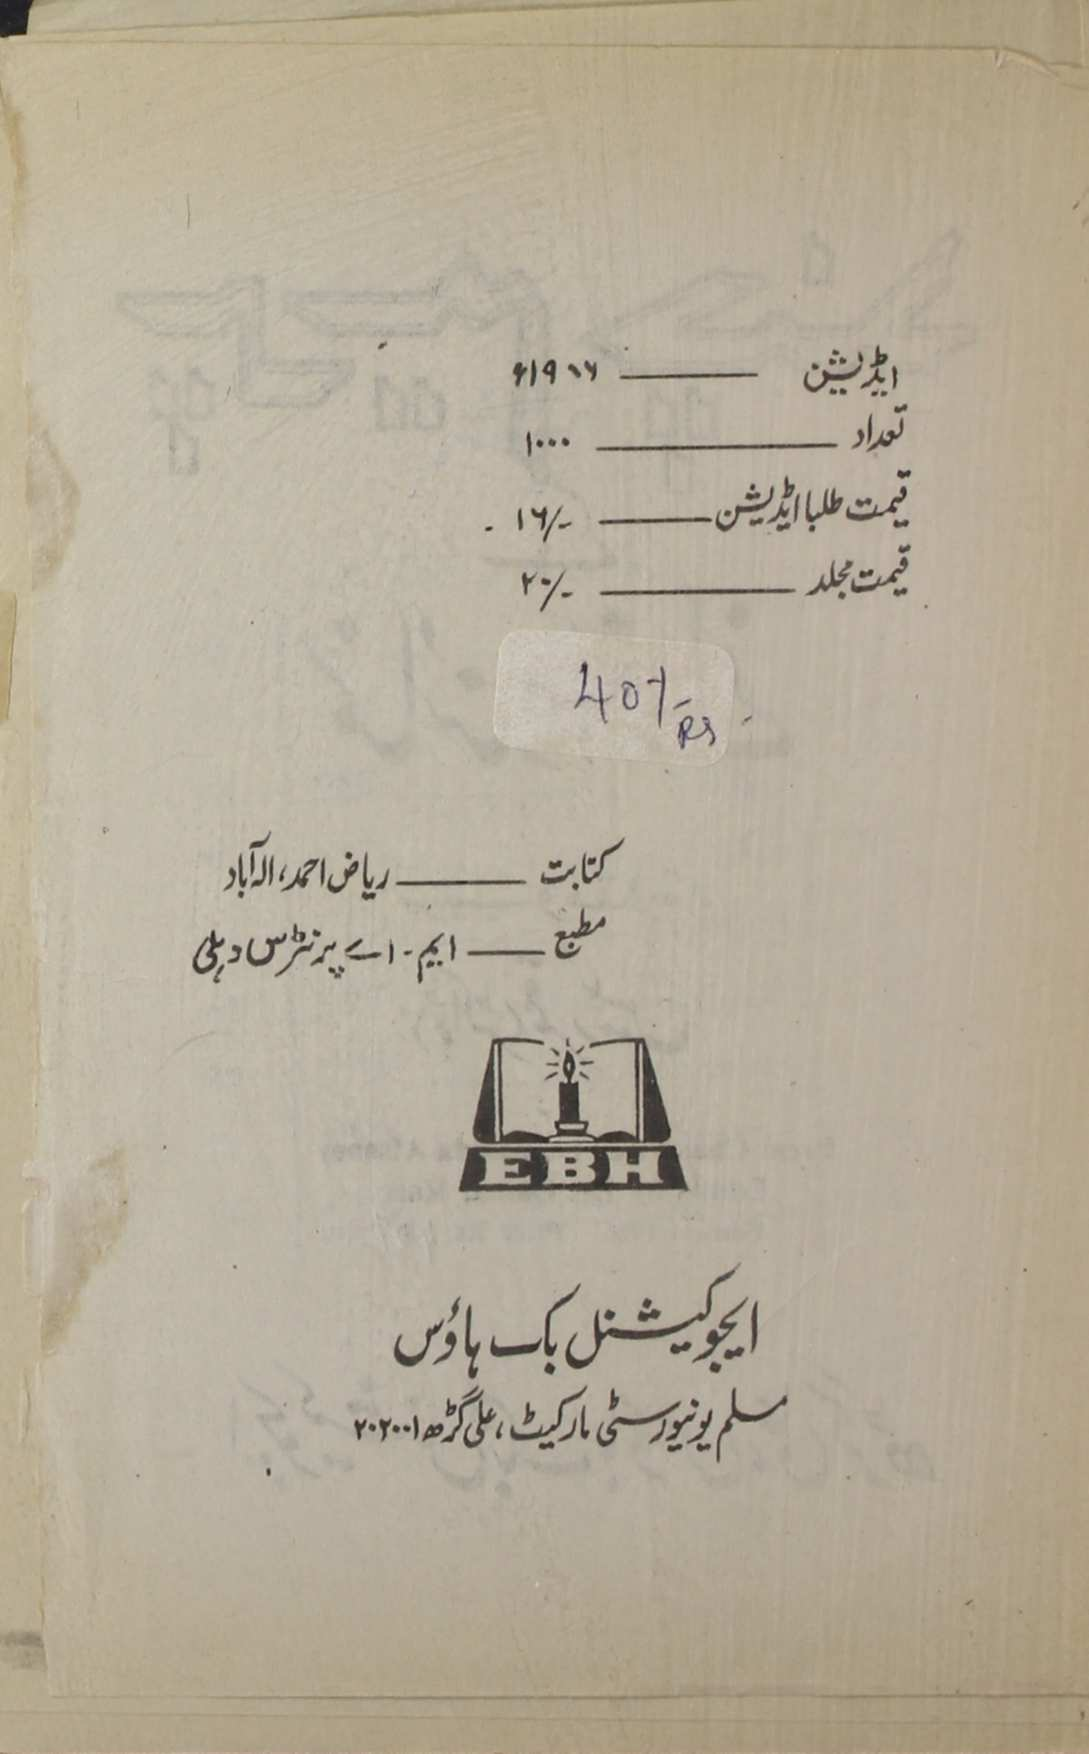 ایڈیشن ——— ۱۹۸۶ء
تعداد ——— ۱۰۰۰
قیمت طلبا ایڈیشن ——— ۱۶/-
قیمت مجلد ——— ۲۰/-
40/- Rs
کتابت ——— ریاض احمد، الہ آباد
مطبع ——— ایم - اے پرنٹرس دہلی
EBH
ایجوکیشنل بک ہاؤس
مسلم یونیورسٹی مارکیٹ، علی گڑھ ۲۰۲۰۰۱